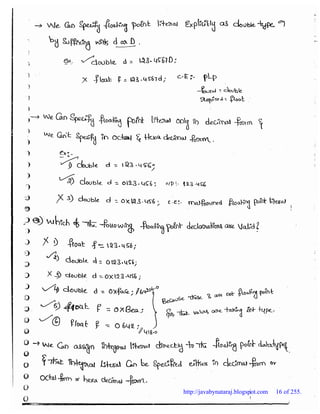 → We Can Specify floating point literal Explicitly as double type
by Suffixing with d or D.
Ex: ✓ double d = 123.4567D;
X float f = 123.4567d; C.E:- PLP
found = double
required = float
→ We Can Specify floating point literal only in decimal form &
We Can't Specify in Octal & Hexa decimal form.
Ex:-
✓ 1) double d = 123.456;
✓ 2) double d = 0123.456; o/p: 123.456
X 3) double d = 0x123.456; C.E: malformed floating point literal
Q) Which of the following floating point declarations are Valid?
X 1) float f = 123.456;
✓ 2) double d = 0123.456;
X 3) double d = 0x123.456;
✓ 4) double d = 0xface;
✓ 5) float f = 0xBea;
✓ 6) float f = 0642;
Because these 3 are not floating point
these are int type.
→ We Can assign Integral literal directly to the floating point datatype
& that Integral literal Can be Specified either in decimal form or
Octal form or hexa decimal form.
http://javabynataraj.blogspot.com 16 of 255.